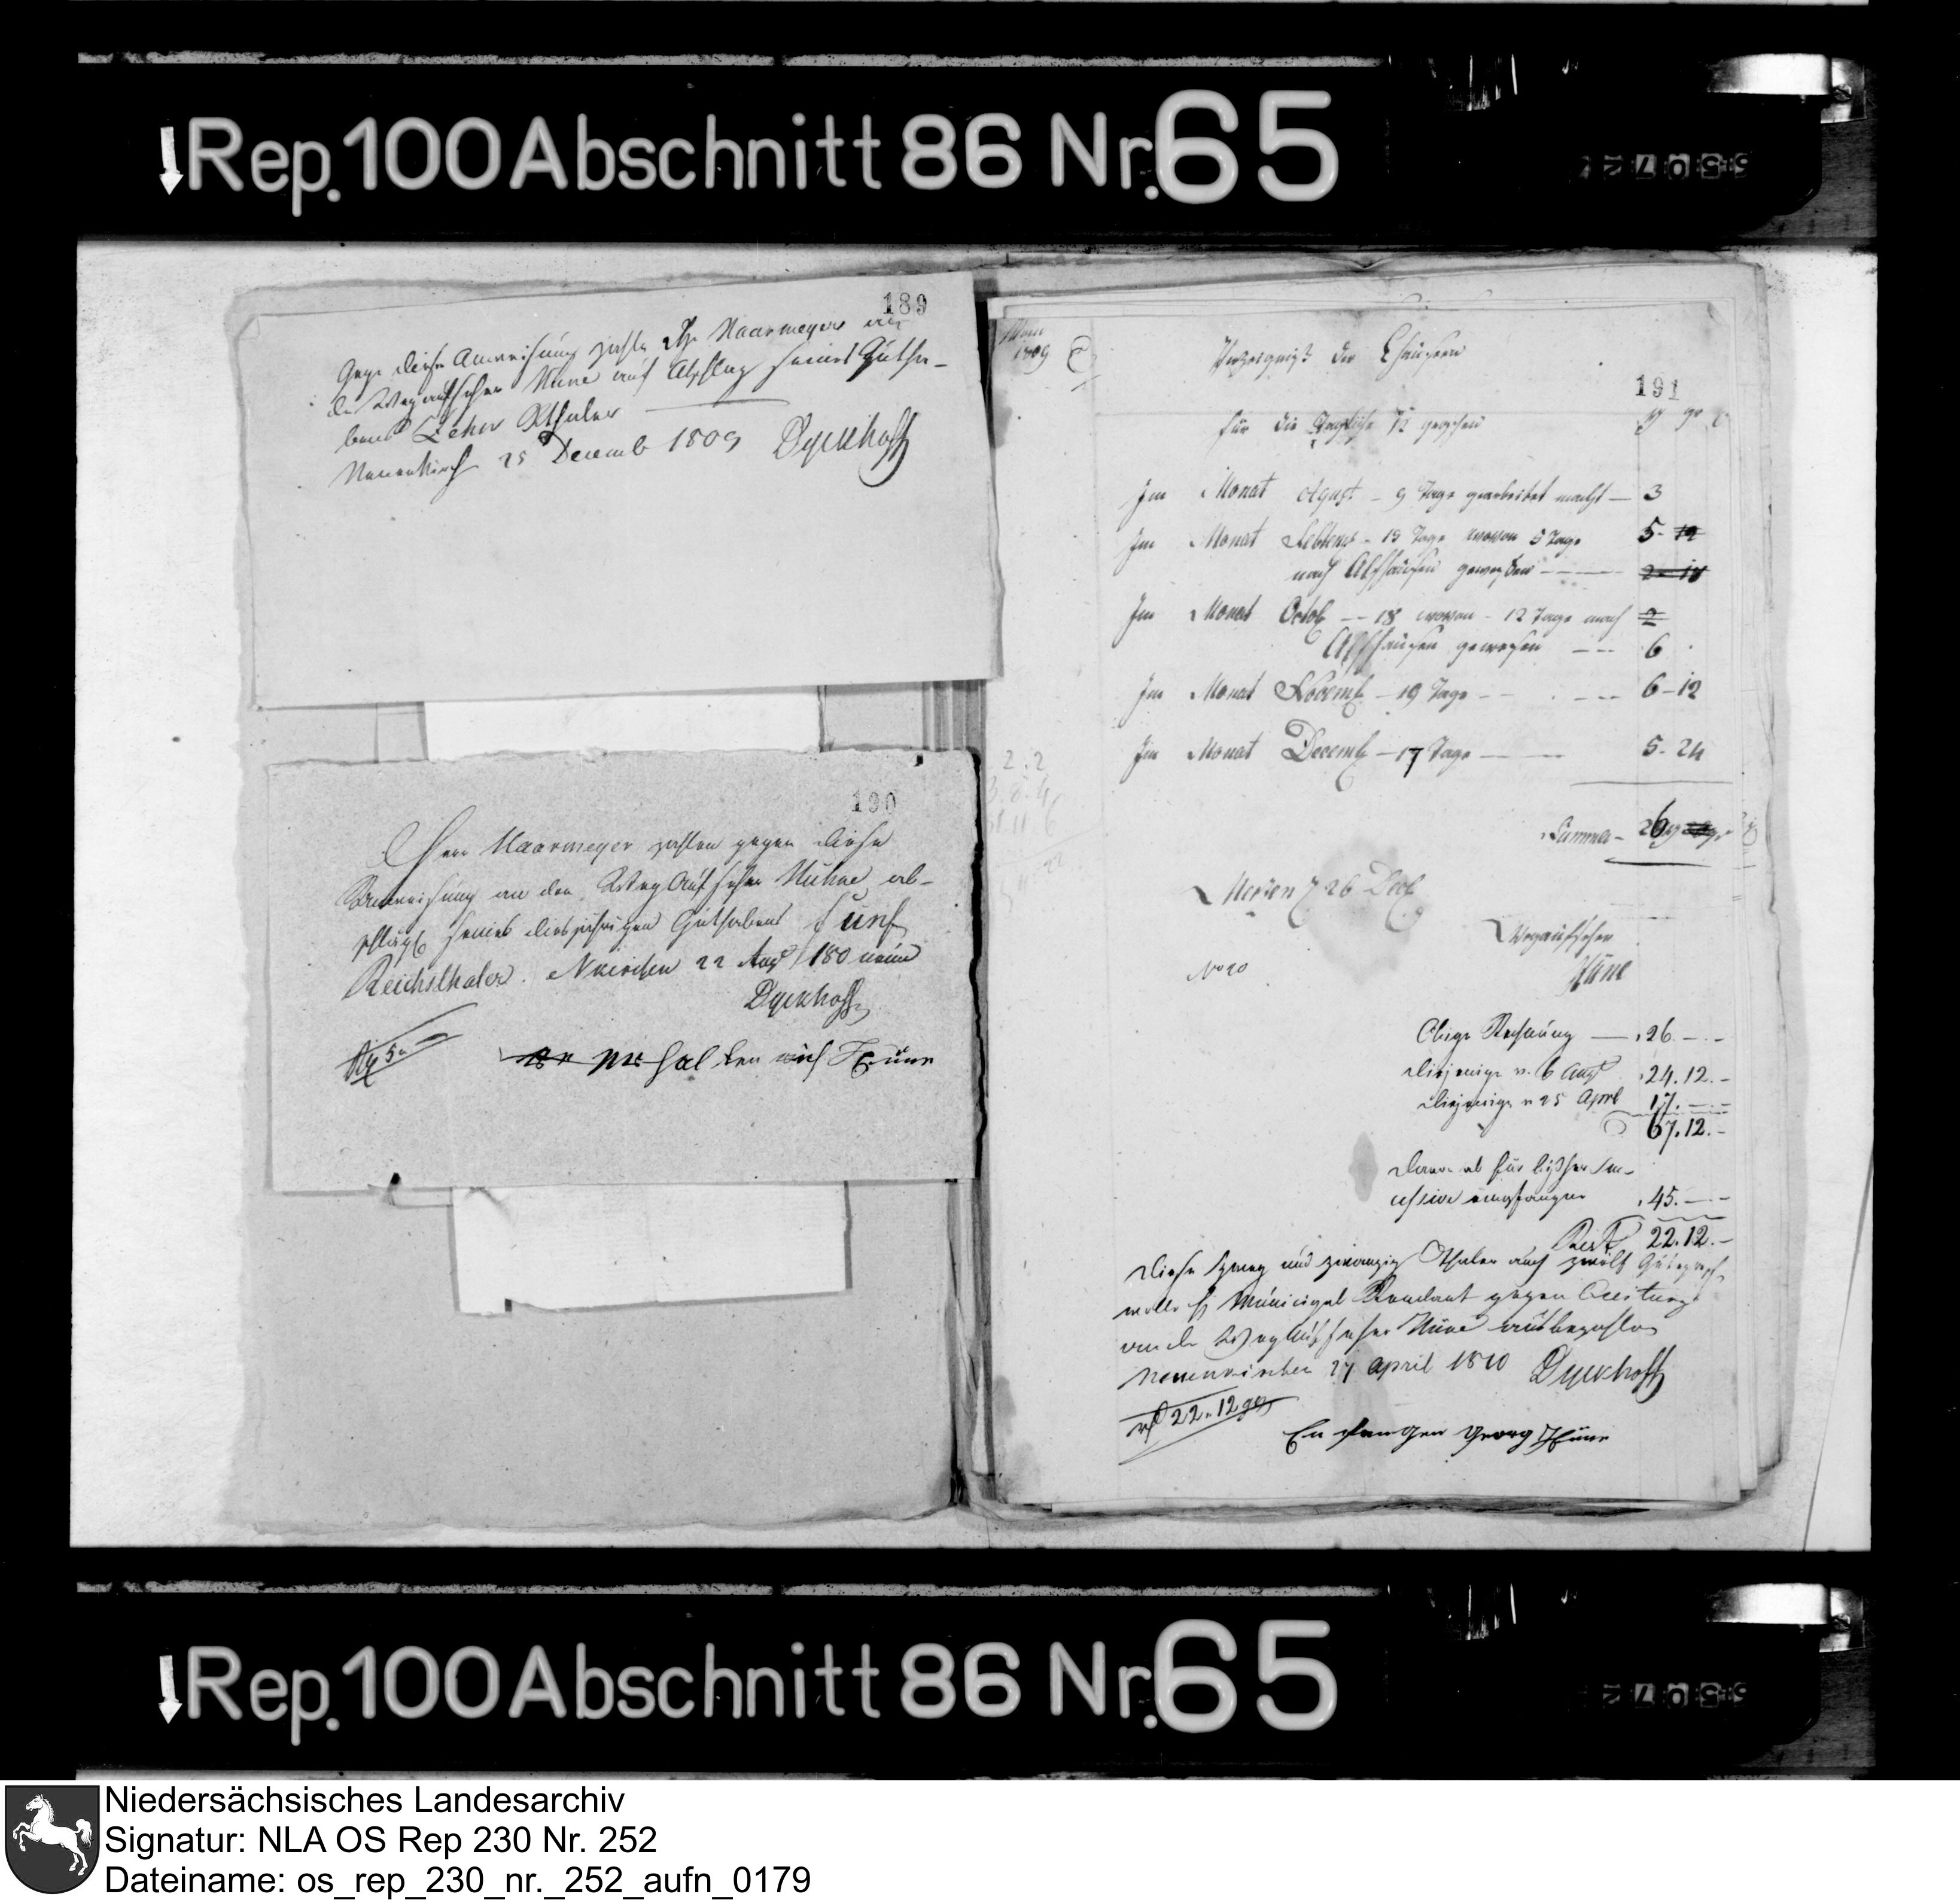 Rep. 100 Abschnitt 86 Nr. 65
189
Gegen diese Anweisung zahle Hr Naarmeyer an
de Wegaufseher Hüne auf Abschlag seines Gutha-
bens Zehn Rthaler
Neuenkirch 25 Decemb 1809 Dyckhoff
190
Herr Naarmeyer zahlen gegen diese
Anweisung an den Weg Aufseher Hühne ab-
schlägl seines diesjährigen Guthabens fünf
Reichsthaler. Nkirchen 22 Aug 180 neun
Dyckhoff
Rthl 5
er halten ich Hüne
1809
Verzeigniß der Chausseen
191
für die 12 groschen
Im Monat Agust - 9 Tage gearbeitet macht - 3
Im Monat Sebtemb - 15 Tage wovon 5 Tage 5 - 12
nach Alfhausen gewesen 2 - 18
Im Monat Octob -- 18 wovon - 12 Tage nach 2
Alfhausen gewesen --- 6
Im Monat Novemb - 19 Tage -- 6 - 12
Im Monat Decemb - 17 Tage -- 5 - 24
Summa - 26
Merzen 26 Decb
Wegaufseher
Hüne
No 20
Obige Rechnung — 26. – . –
Diejenige v. 6 Aug 24. 12. –
Diejenige v 25 April 17. – . –
67. 12. –
Davon ab für bißher suc-
cessive empfangen 45. – . –
Rest 22. 12. –
Diese zwey und zwanzig Rthaler auch zwölf Gutegrosch
wolle H Municipal Rendant gegen Quitung
an de Weg Aufseher Hüne ausbezahlen
Neuenkirchen 27 April 1810 Dyckhoff
rt 22. 12 ggr
En fangen Georg Hüne
Rep. 100 Abschnitt 86 Nr. 65
Niedersächsisches Landesarchiv
Signatur: NLA OS Rep 230 Nr. 252
Dateiname: os_rep_230_nr._252_aufn_0179